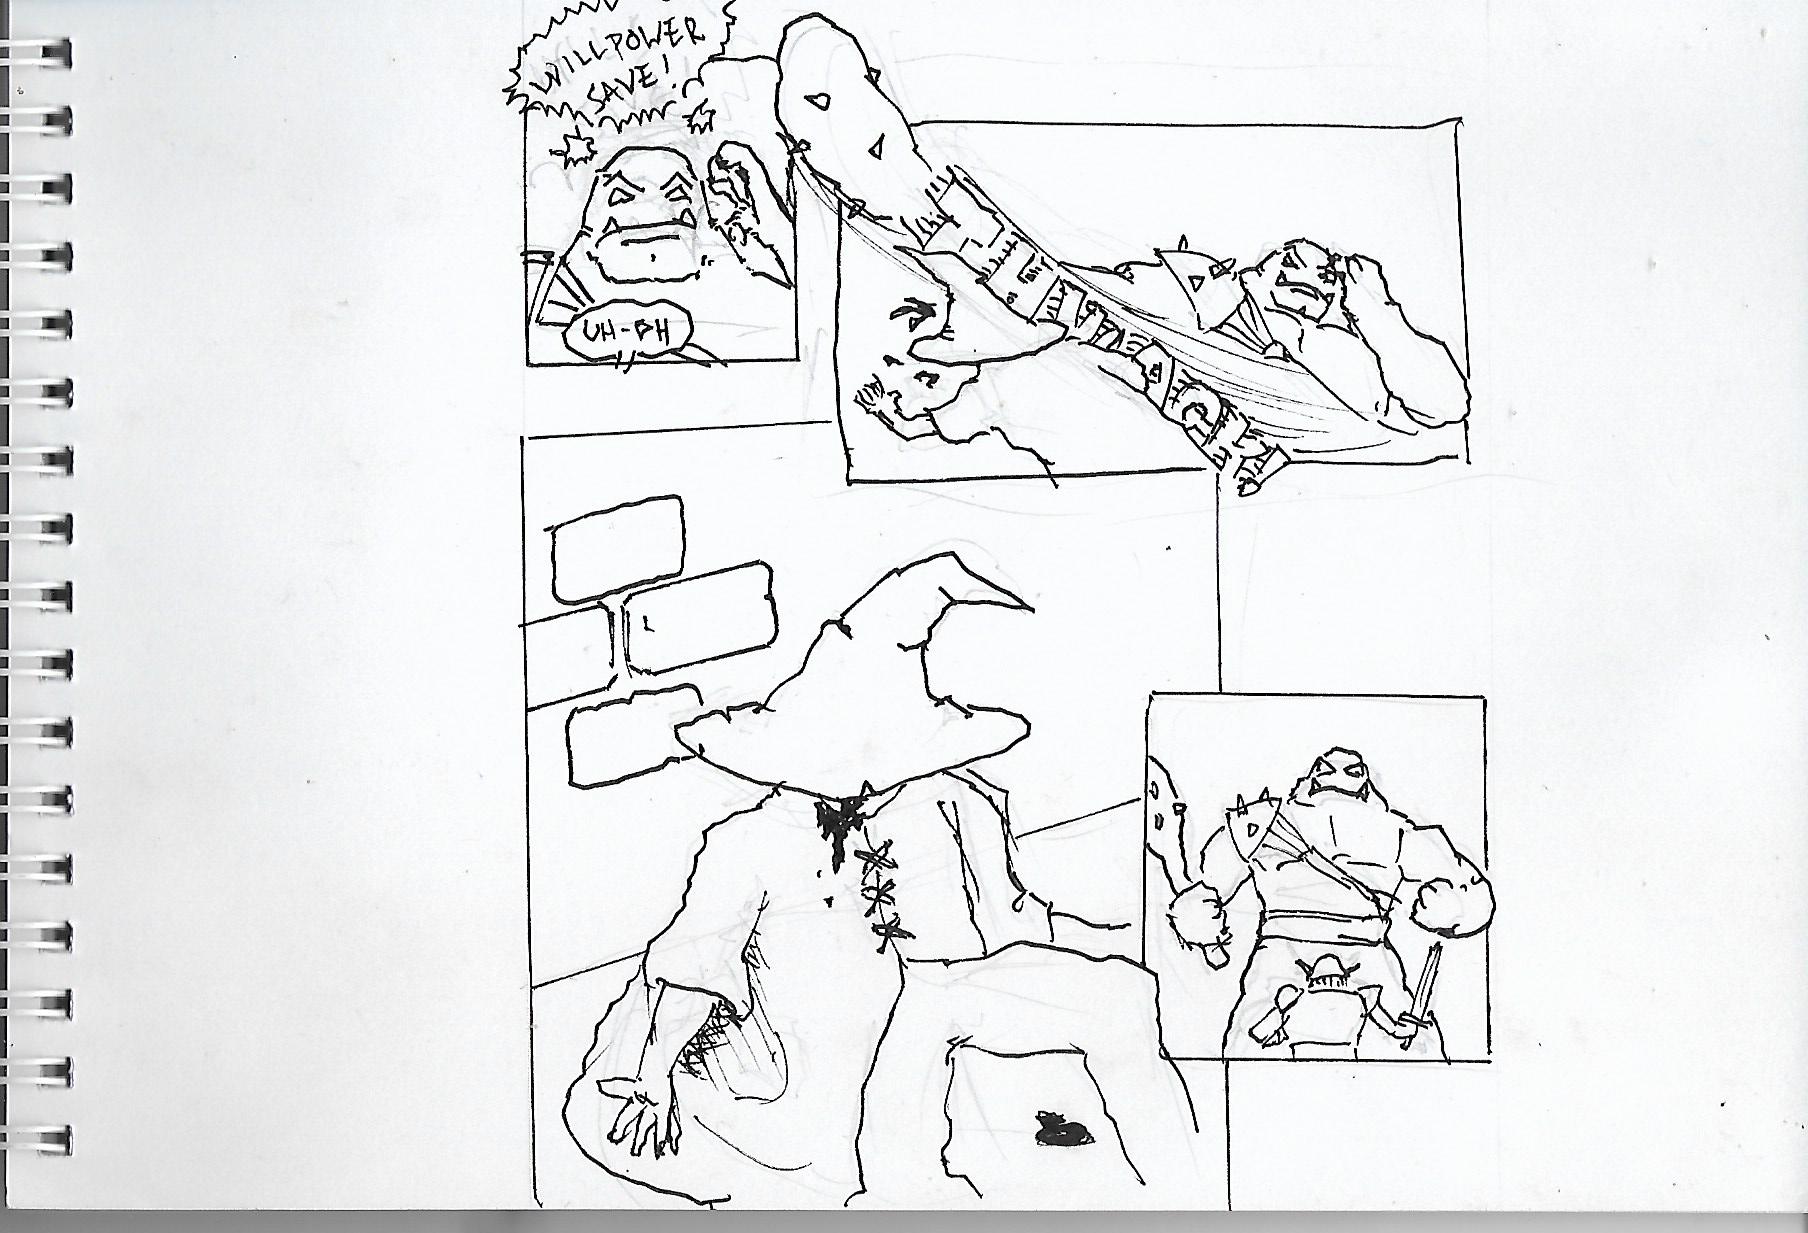 WILLPOWER
SAVE!
UH-OH